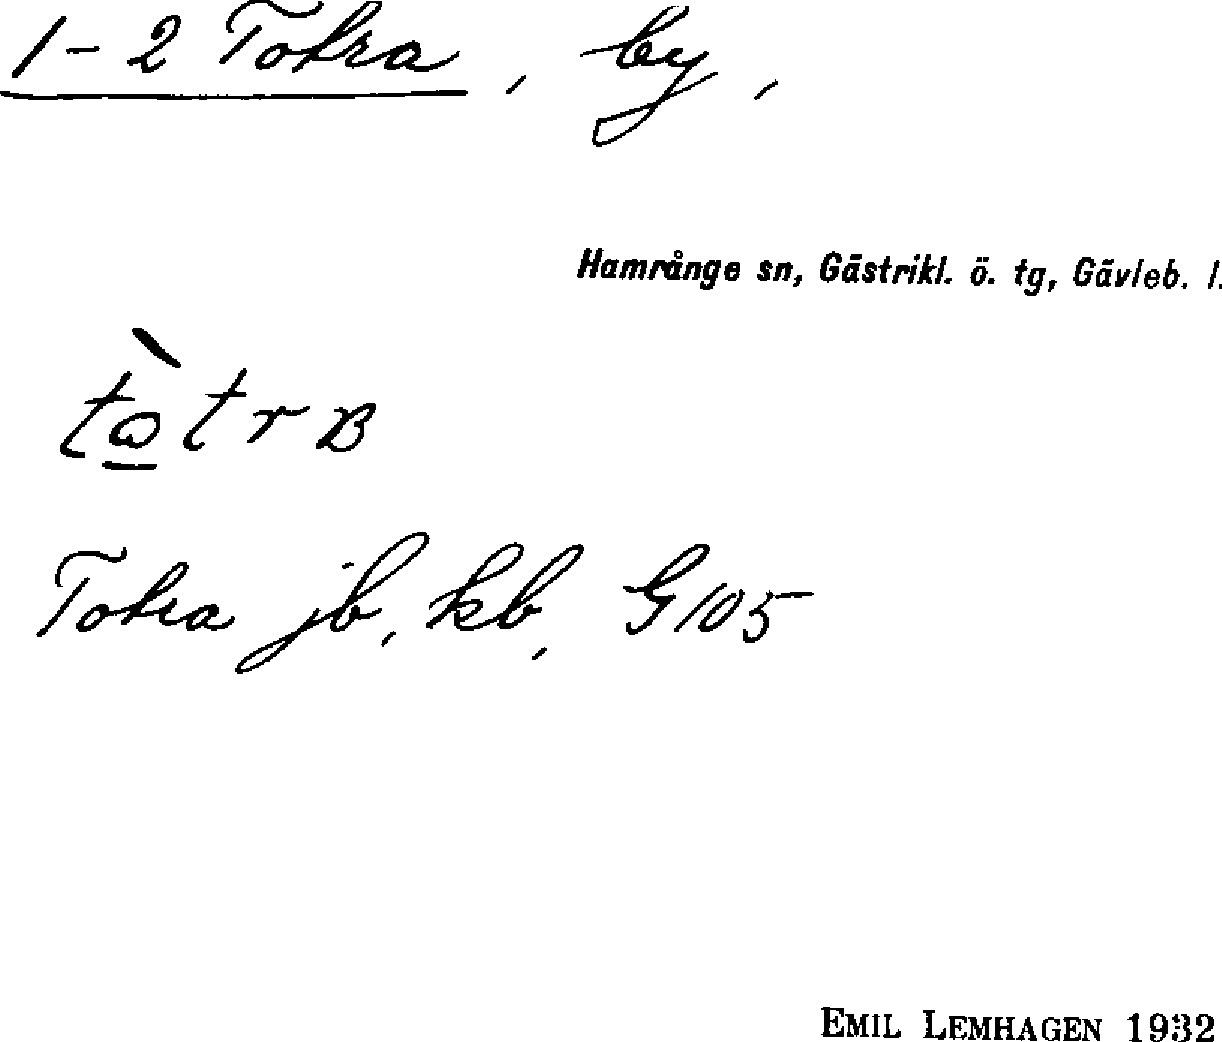 1-2 Totra, by,
Hamrånge sn, Gästrikl. ö. tg, Gävleb. l.
tὼ̲trʙ
Totra jb, kb, G105
EMIL LEMHAGEN 1932